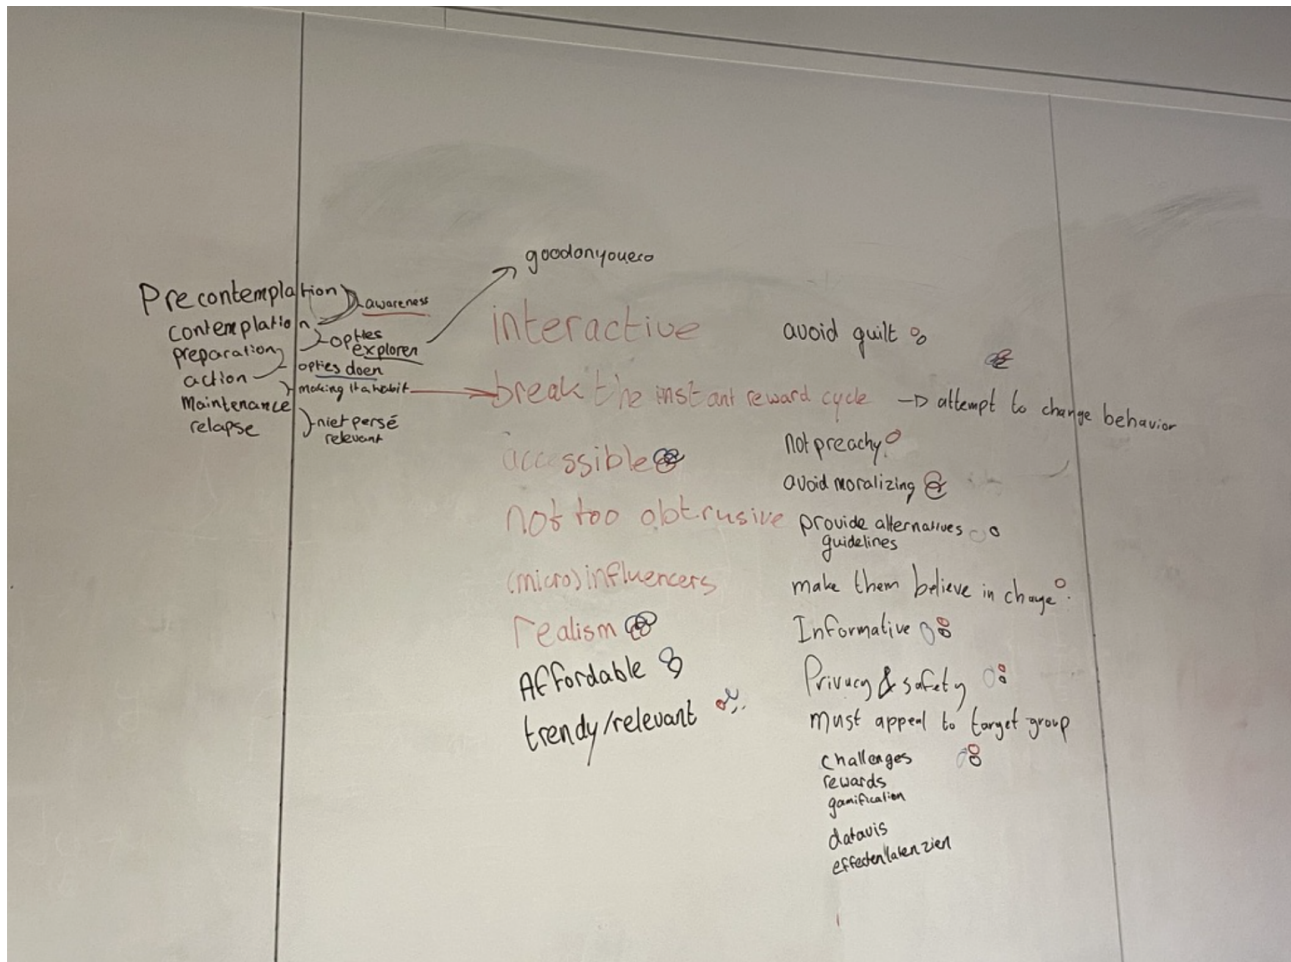 goodonyoueco
Precontemplation
awareness
contemplation
opties
exploren
preparation
opties doen
action
making it a habit
Maintenance
niet persé
relevant
relapse
interactive
break the instant reward cycle → attempt to change behavior
accessible
not too obtrusive
(micro)influencers
realism
Affordable
trendy/relevant
avoid guilt
not preachy
avoid moralizing
provide alternatives
guidelines
make them believe in change
Informative
Privacy & safety
must appeal to target group
challenges
rewards
gamification
datavis
effecten laten zien